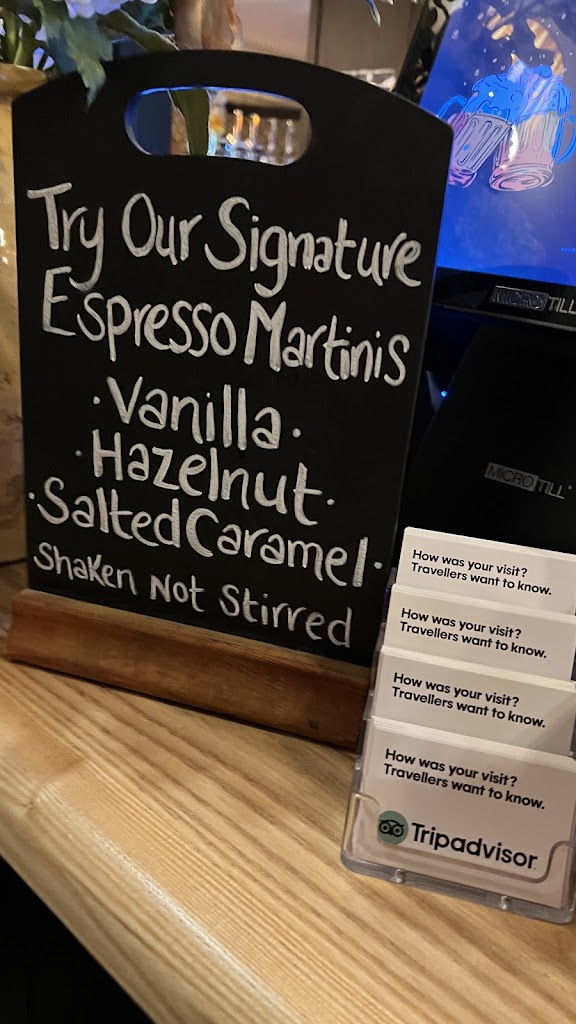 Try Our Signature
Espresso Martinis
·Vanilla·
·Hazelnut·
·Salted Caramel·
Shaken Not Stirred
MICROTILL
MICROTILL
How was your visit?
Travellers want to know.
How was your visit?
Travellers want to know.
How was your visit?
Travellers want to know.
How was your visit?
Travellers want to know.
Tripadvisor